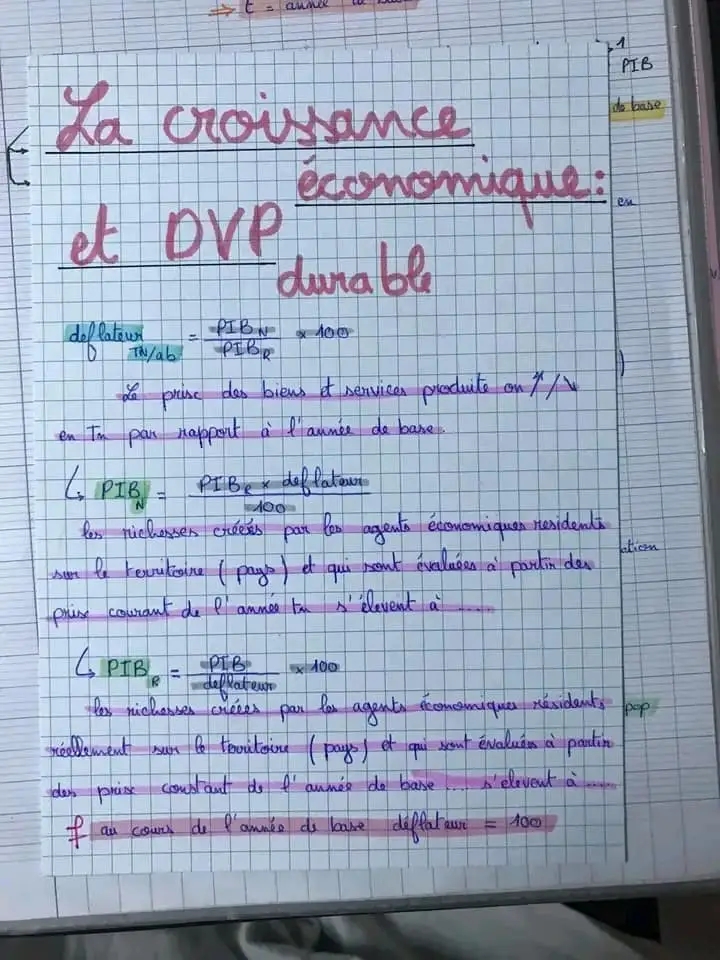 t = année
1
PIB
de base
en
La croissance
économique:
et DVP
durable
deflateur TN/ab = PIB N / PIB R × 100
Le prise des biens et services produite on ↑/↘
en Tn par rapport à l'année de base.
↳ PIB N = PIB R × deflateur / 100
les richesses créées par les agents économiques residents
sur le territoire (pays) et qui sont évaluées à partir des
prise courant de l'année tn s'élevent à ......
ation
↳ PIB R = PIB / deflateur × 100
les richesses créées par les agents économiques résidents
pop
réellement sur le territoire (pays) et qui sont évaluées à partir
des prise constant de l'année de base .... s'élevent à .....
au cours de l'année de base déflateur = 100